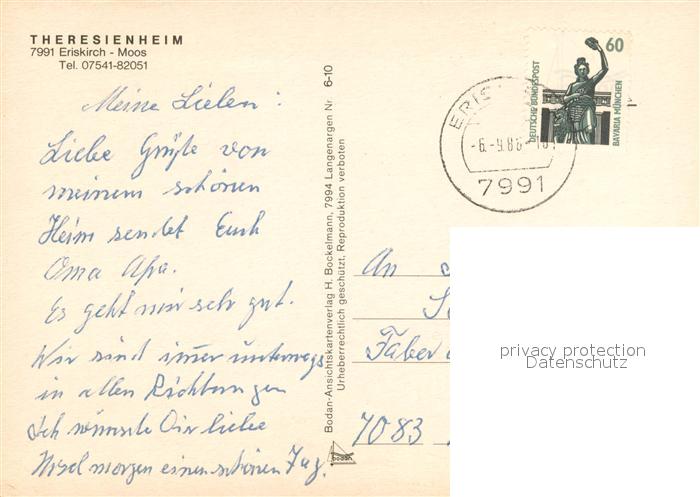 THERESIENHEIM
7991 Eriskirch - Moos
Tel. 07541-82051
Meine Lieben!
Liebe Grüße von
meinem schönen
Heim sendet Euch
Oma
Es geht mir sehr gut.
Wir sind immer unterwegs
in allen Richtungen
Ich wünsche Dir liebe
morgen einen schönen Tag.
Bodan-Ansichtskartenverlag H. Bockelmann, 7994 Langenargen Nr. 6-10
Urheberrechtlich geschützt, Reproduktion verboten
bodan
DEUTSCHE BUNDESPOST
60
BAVARIA MÜNCHEN
ERIS
-6.-9.88
7991
An
Faber
7083
privacy protection
Datenschutz